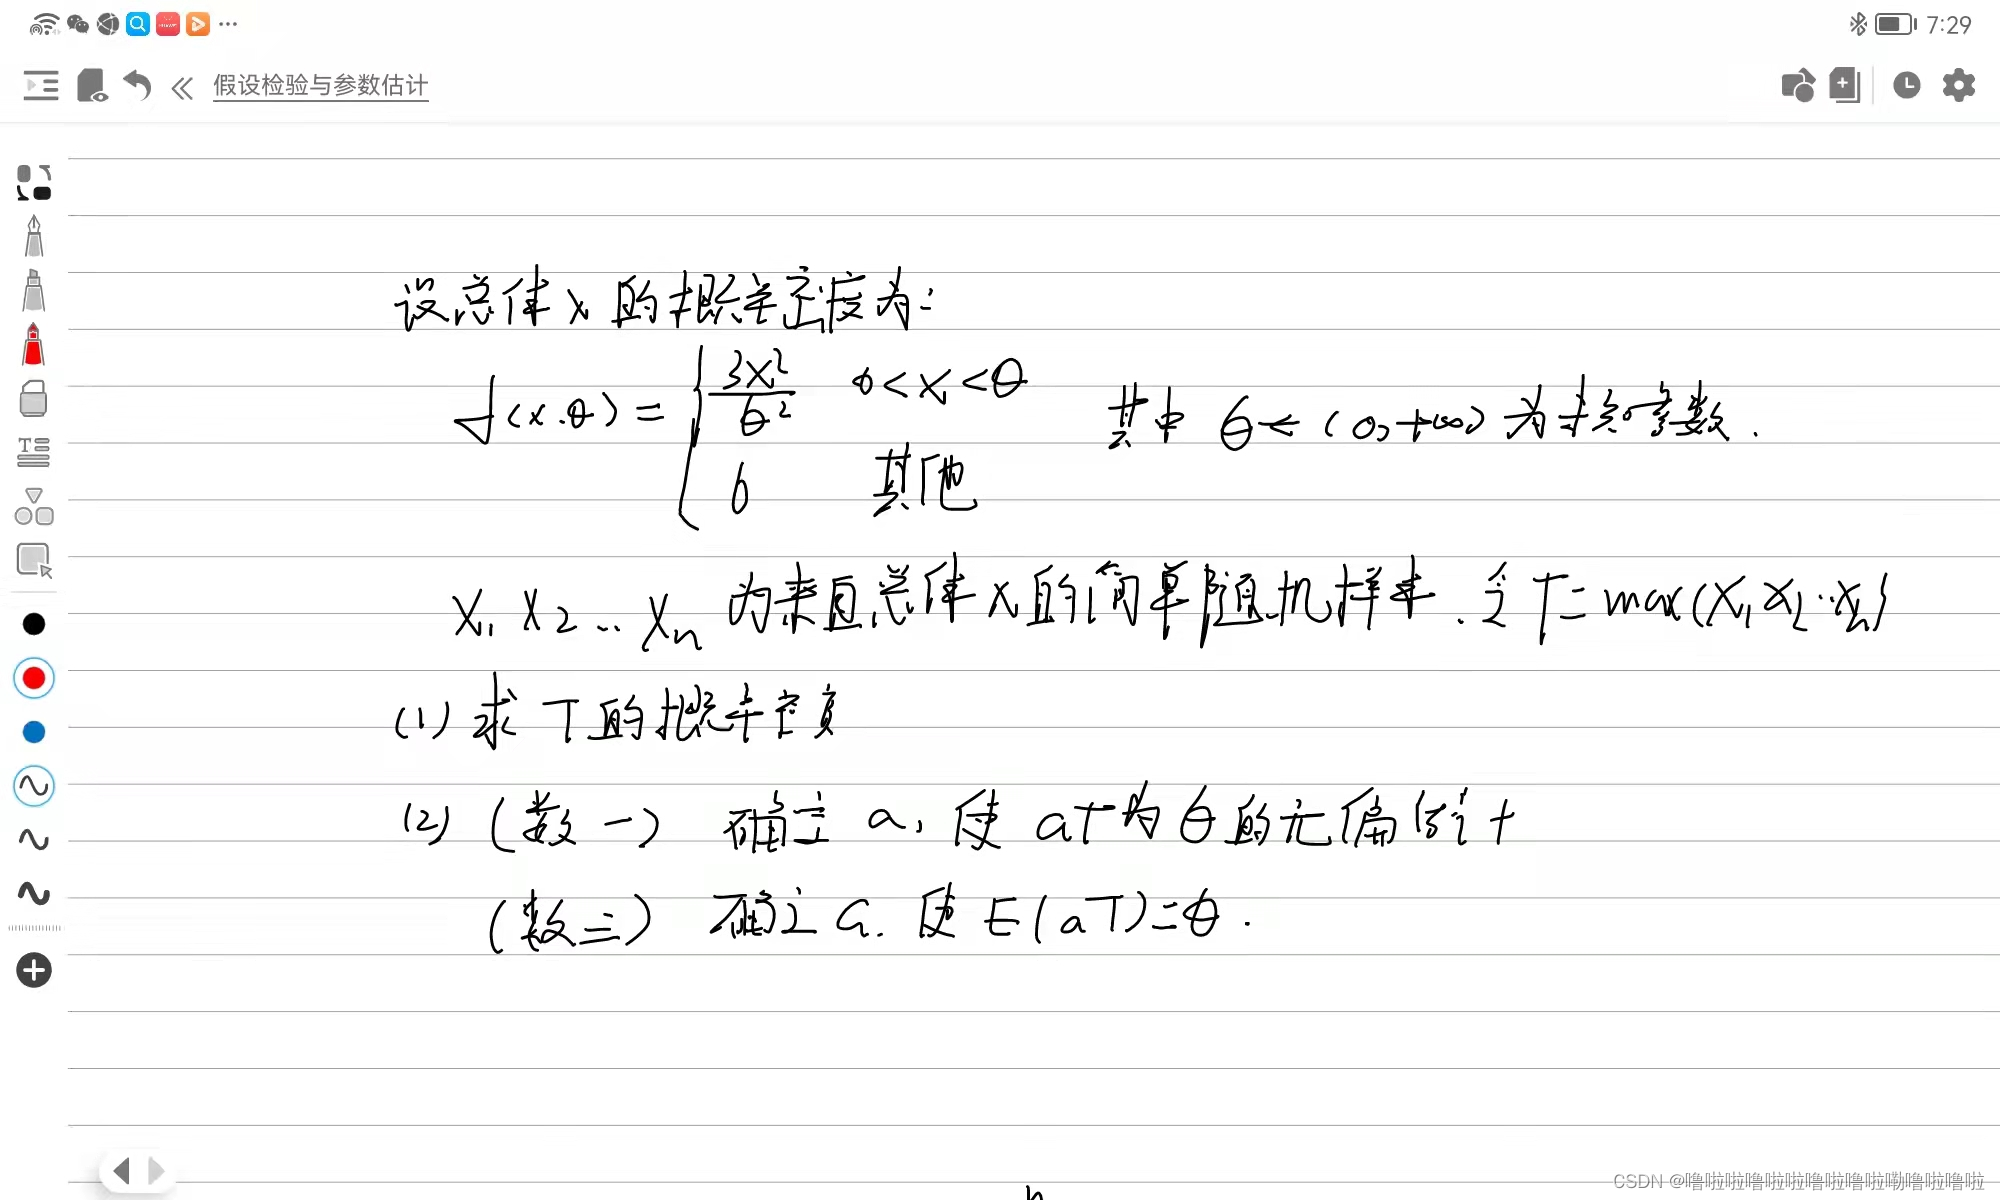 7:29
假设检验与参数估计
设总体 X 的概率密度为:
f(x.θ) = { 3x²/θ² 0<x<θ
0 其他
其中 θ∈(0,+∞) 为未知参数.
X₁ X₂ … Xₙ 为来自总体 X 的简单随机样本. 令 T=max(X₁ X₂ … Xₙ)
(1) 求 T 的概率密度
(2) (数一) 确定 a, 使 aT 为 θ 的无偏估计
(数三) 确定 a. 使 E(aT)=θ.
CSDN @噜啦啦噜啦啦噜啦噜啦嘞噜啦噜啦